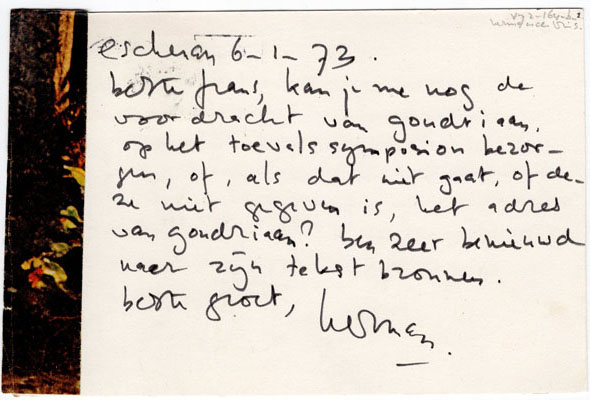 escheran 6-1-73.
beste frans, kan je me nog de
voordracht van goudriaan,
op het toevalssymposion bezor-
gen, of, als dat niet gaat, of de-
ze niet gegeven is, het adres
van goudriaan? ben zeer benieuwd
naar zijn tekst bronnen.
beste groet, herman.